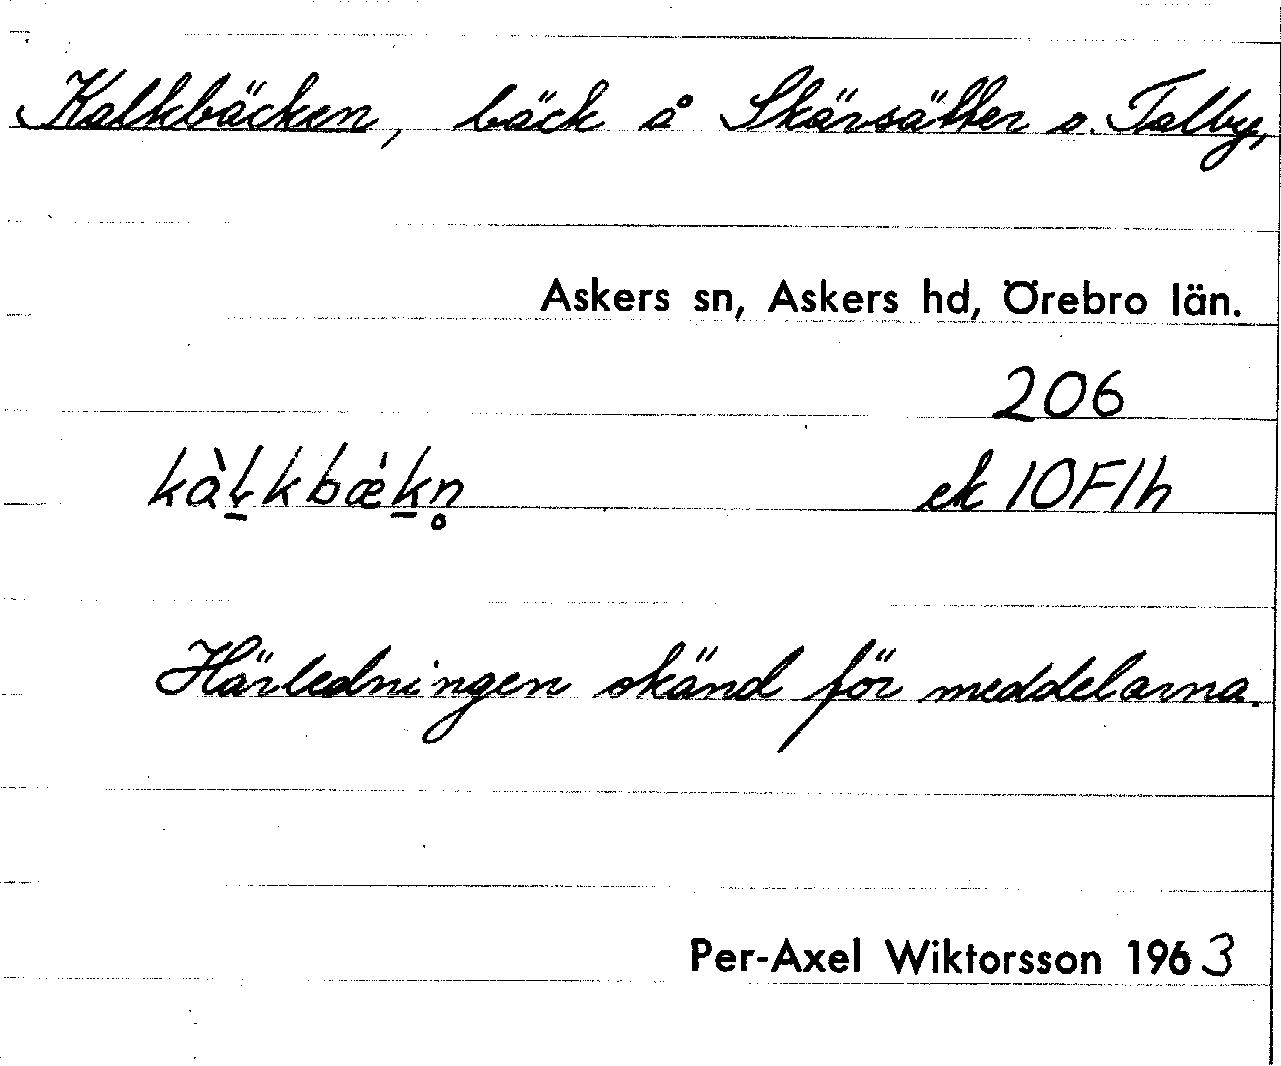 Kalkbäcken, bäck å Skärsätter o. Talby,
Askers sn, Askers hd, Örebro län.
206
kàl̠kbæ̀k̠n̥ ek 10F1h
Härledningen okänd för meddelarna.
Per-Axel Wiktorsson 1963